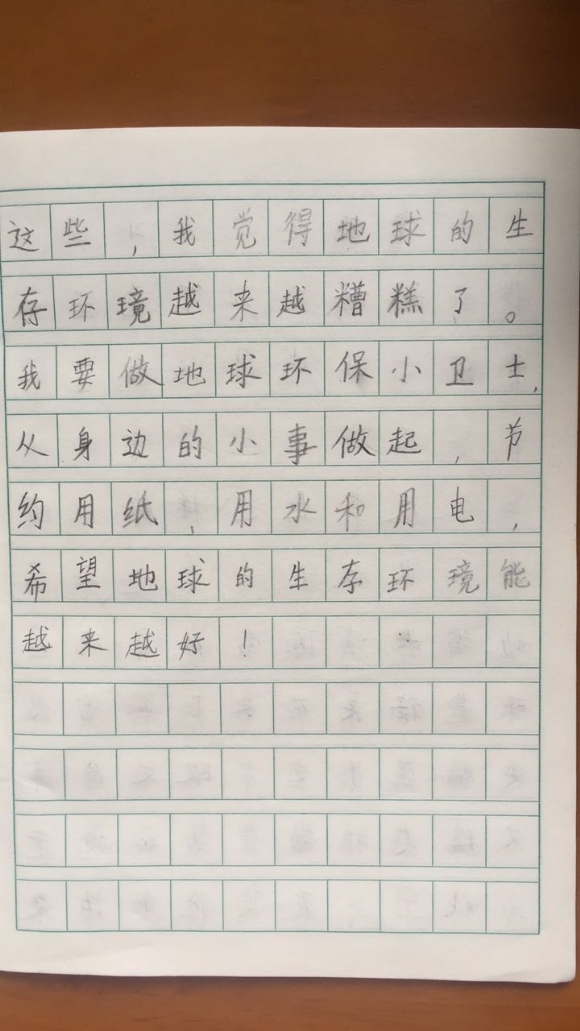 这些，我觉得地球的生
存环境越来越糟糕了。
我要做地球环保小卫士，
从身边的小事做起，节
约用纸，用水和用电，
希望地球的生存环境能
越来越好！